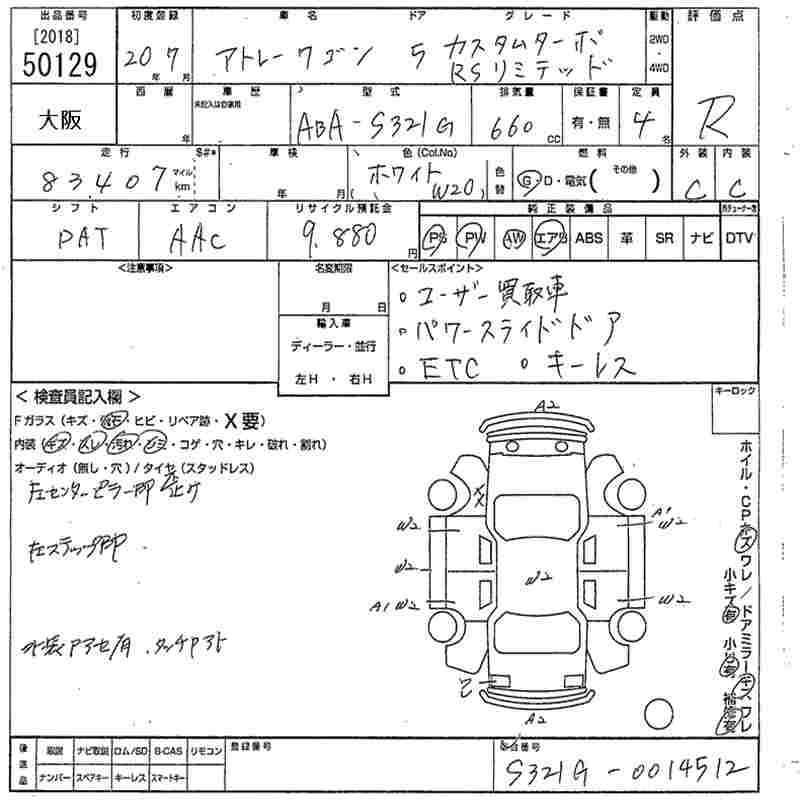 出品番号 初度登録 車名 ドア グレード 駆動 評価点
[2018]
50129
20年 7月 アトレーワゴン 5 カスタムターボ
RSリミテッド
2WD・4WD
大阪 西暦 年 車歴 未記入は自家用 型式 排気量 保証書 定員
ABA-S321G 660cc 有・無 4名 R
走行 S#* 車検 色(Col.No) 色替 燃料 外装 内装
83,407 マイル km 年 月 ホワイト (W20) G・D・電気(その他) C C
シフト エアコン リサイクル預託金 純正装備品
DAT AAC 9,880円 PS PW AW エアB ABS 革 SR ナビ DTV
<注意事項> 名変期限 <セールスポイント>
月 日
。ユーザー買取車
。パワースライドドア
。ETC 。キーレス
輸入車
ディーラー・並行
左H・右H
<検査員記入欄> キーロック
Fガラス(キズ・飛石・ヒビ・リペア跡・X要)
内装(キズ・スレ・汚れ・シミ・コゲ・穴・キレ・破れ・割れ)
オーディオ(無し・穴)/タイヤ(スタッドレス)
左センターピラー部
左ステップ部
タッチアト
A2
XX
W2 A1 W2
W2 W2
A1 W2 W2
A2
ホイル・CPキズ ワレ/ドアミラーキズ ワレ
後送品 取説 ナビ取説 ロム/SD B-CAS リモコン 登録番号 車台番号
ナンバー スペアキー キーレス スマートキー S321G-0014512